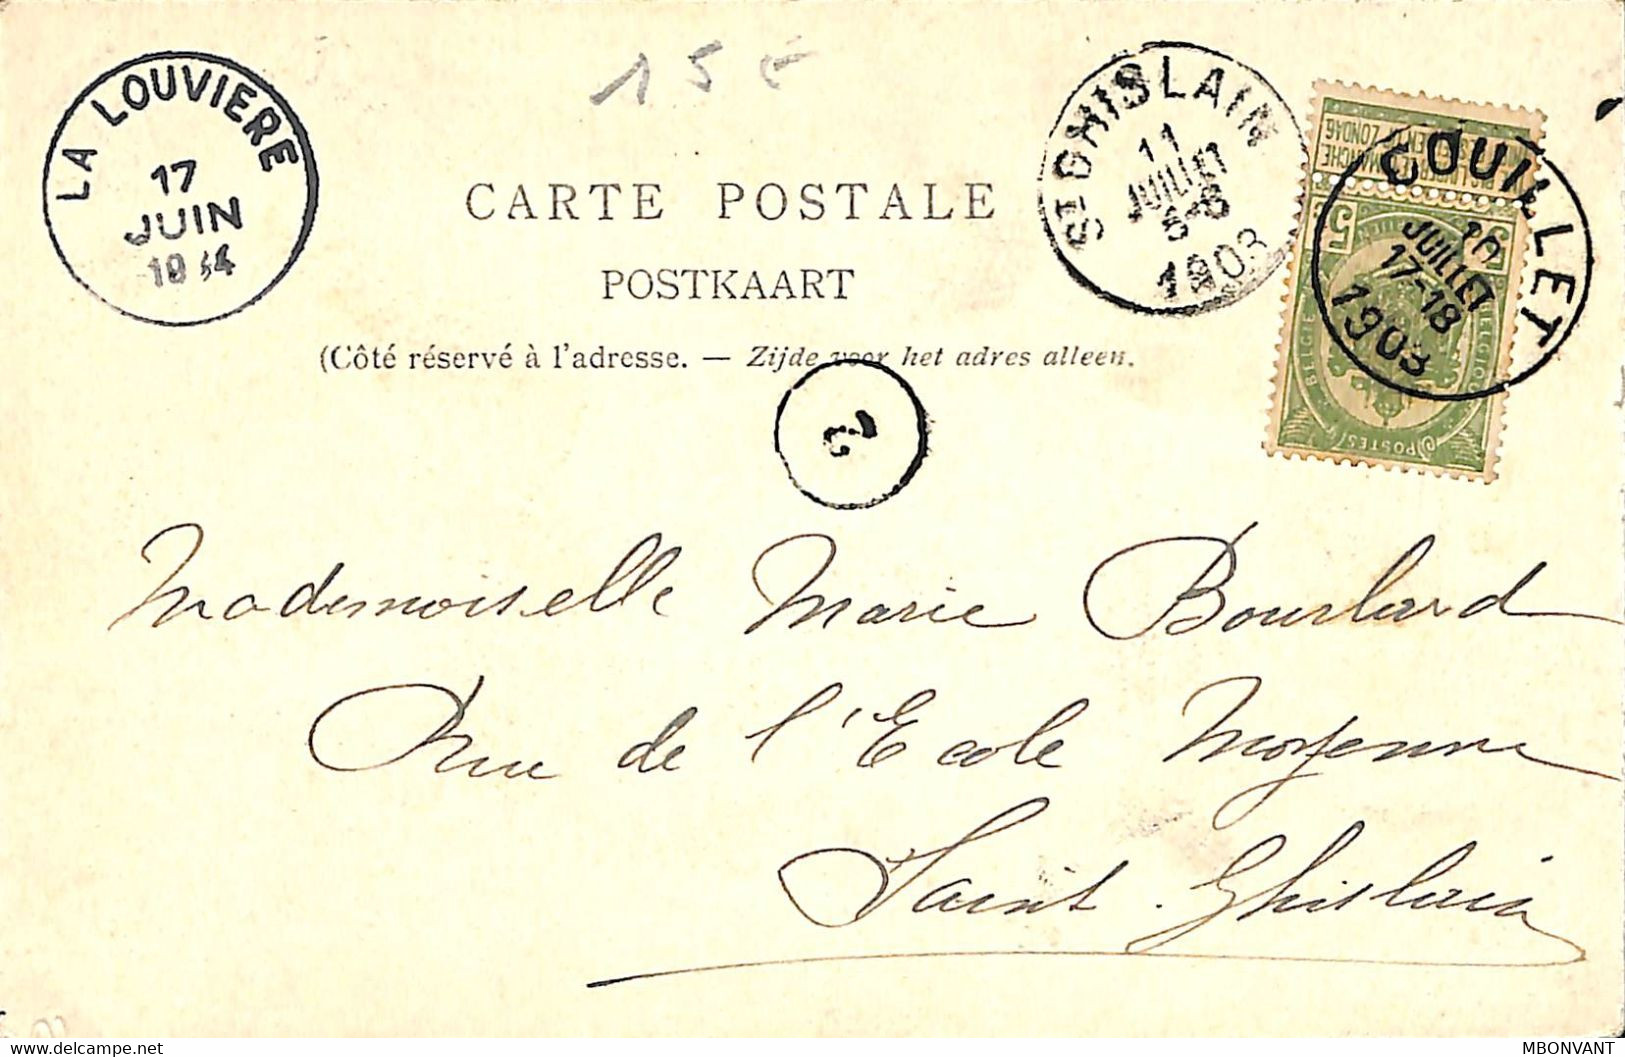 15 €
LA LOUVIERE
17
JUIN
ST GHISLAIN
11
JUILLET
6-8
1903
COUILLET
10
JUILLET
17-18
1903
5
BELGIE
BELGIQUE
POSTES
CARTE POSTALE
POSTKAART
(Côté réservé à l'adresse. — Zijde voor het adres alleen.
2
Mademoiselle Marie Bourlard
Rue de l'Ecole Moyenne
Saint-Ghislain
MBONVANT